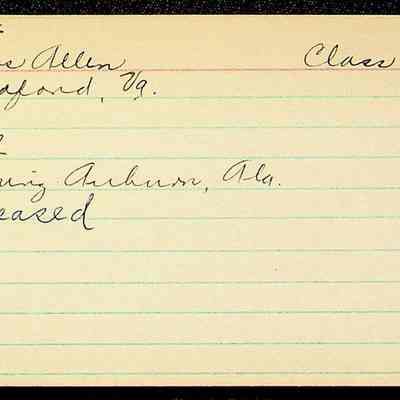 s Allen Class
ford, Va.
ring Auburn, Ala.
eased